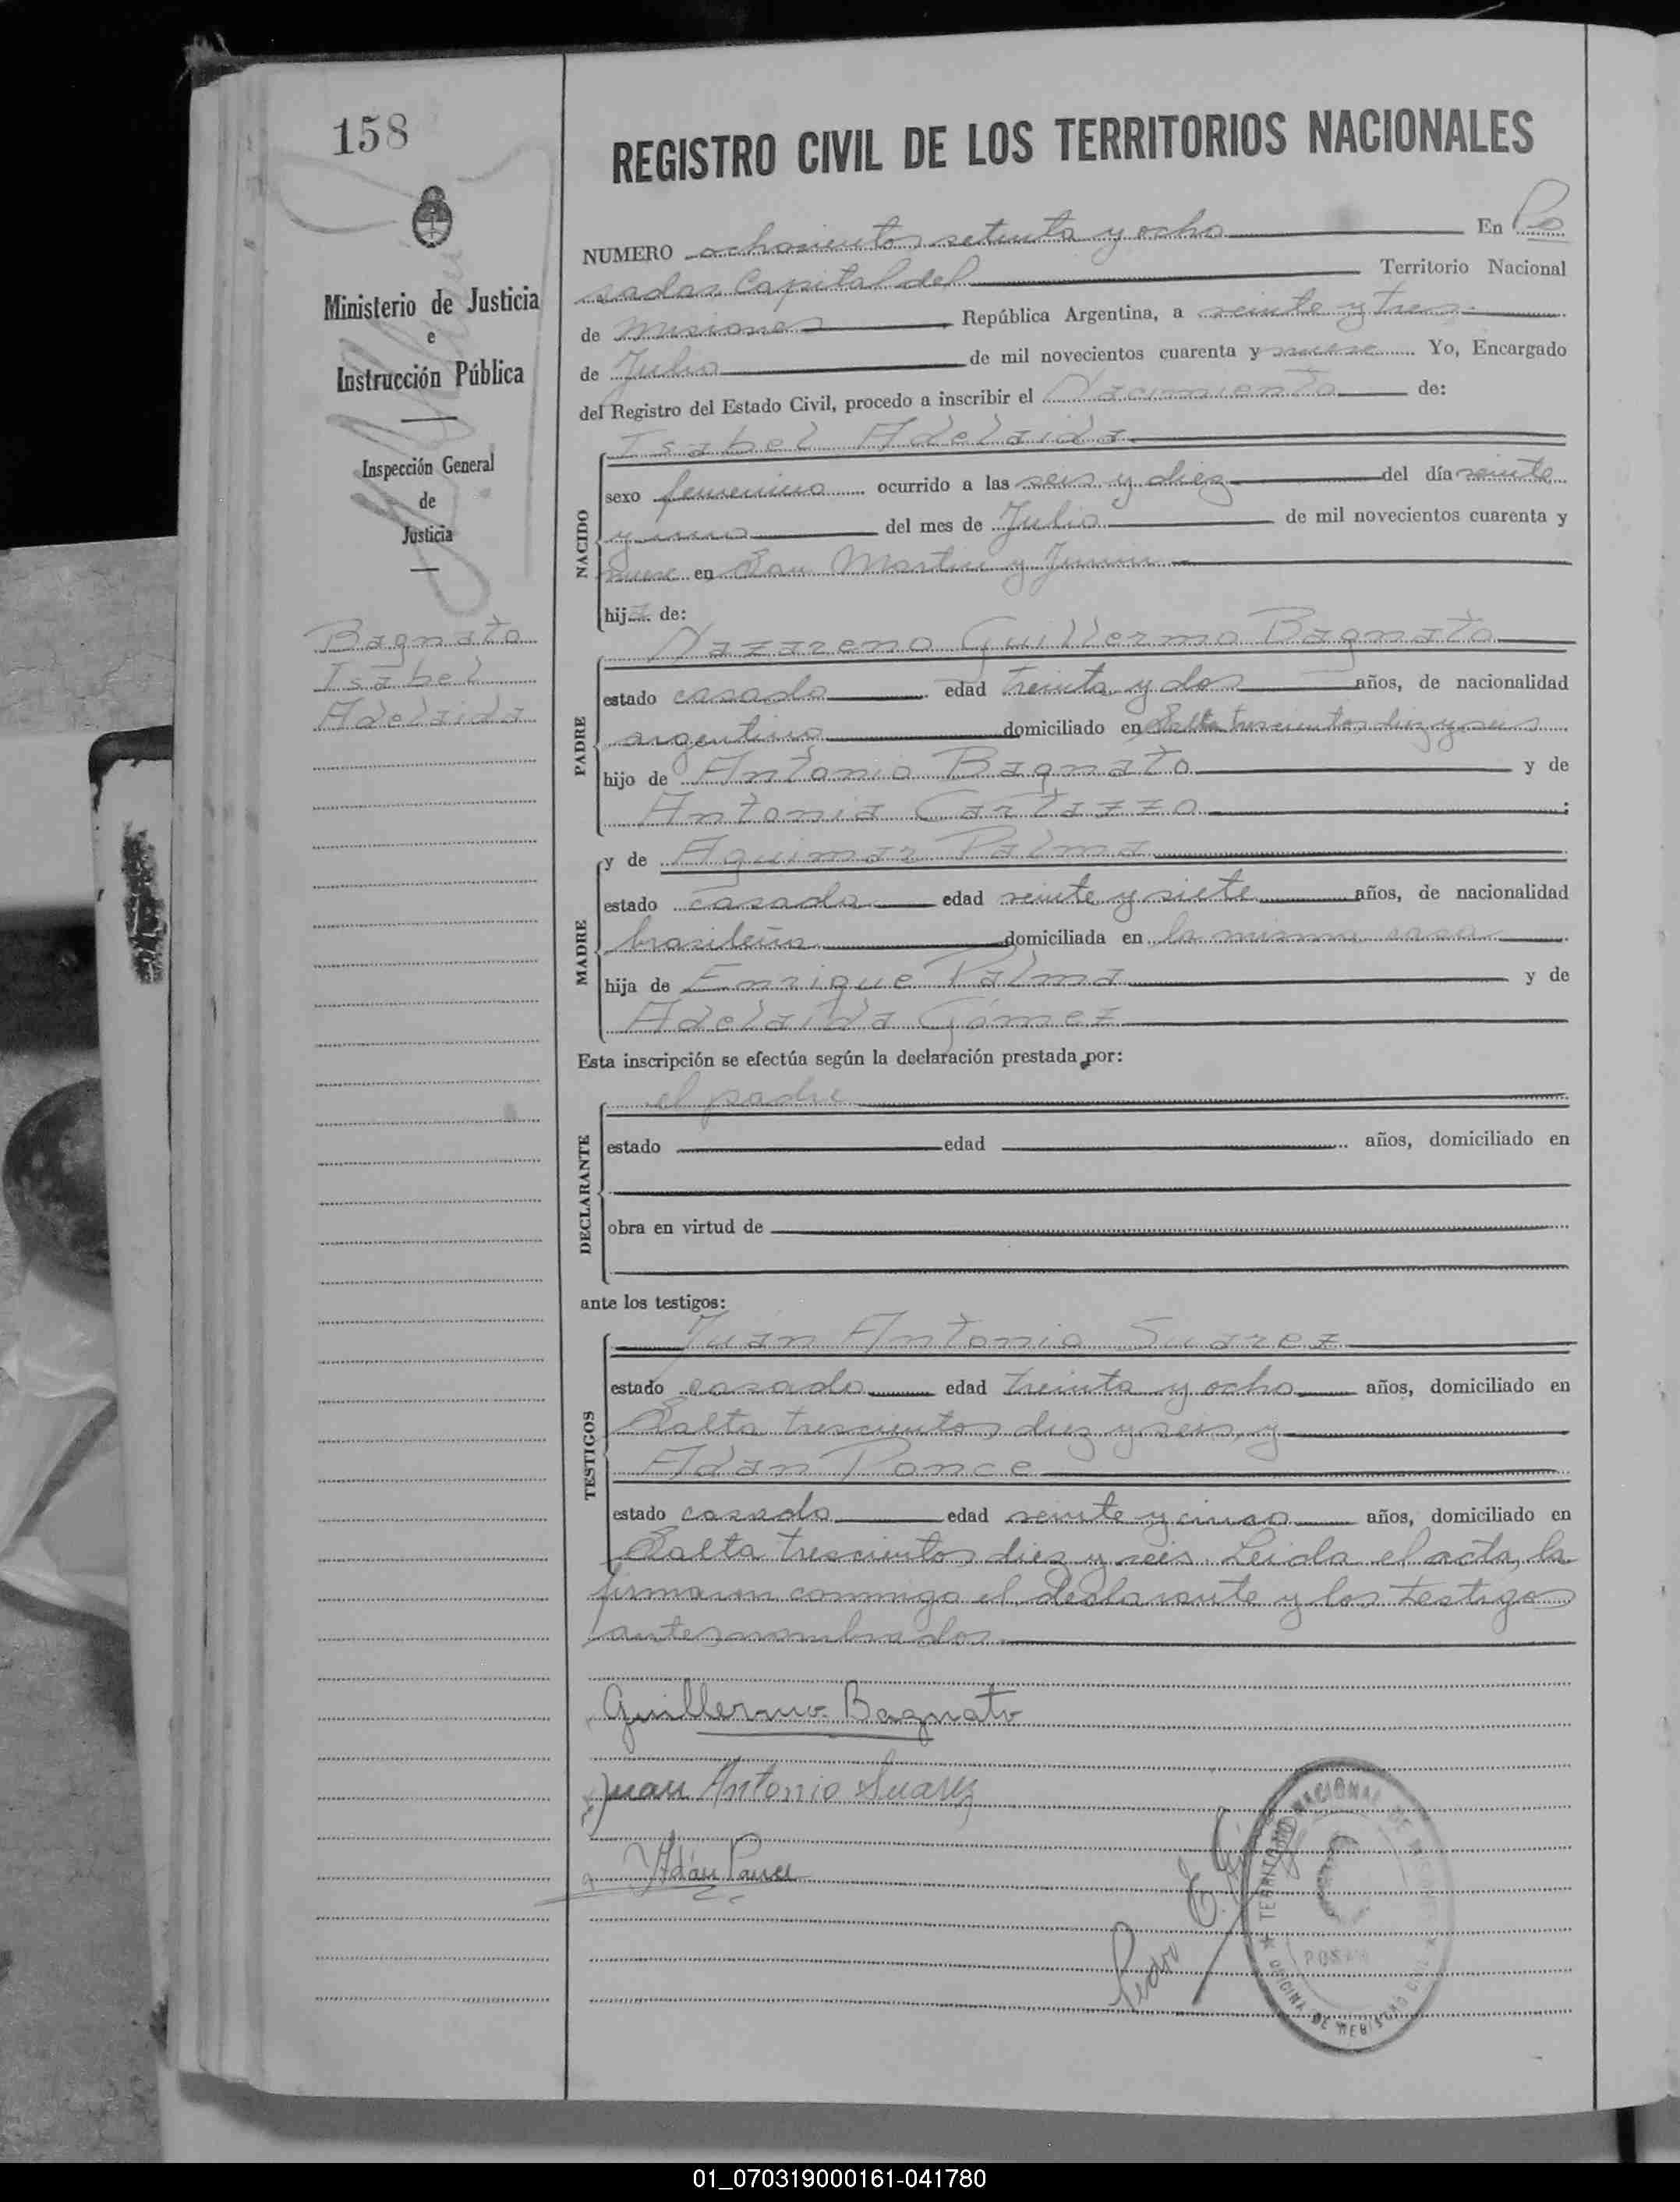 158
Ministerio de Justicia
e
Instrucción Pública
Inspección General
de
Justicia
Bagnato
Isabel
Adelaida
REGISTRO CIVIL DE LOS TERRITORIOS NACIONALES
NUMERO ochocientos setenta y ocho En Po
sadas Capital del Territorio Nacional
de Misiones República Argentina, a veinte y tres
de Julio de mil novecientos cuarenta y nueve Yo, Encargado
del Registro del Estado Civil, procedo a inscribir el Nacimiento de:
Isabel Adelaida
NACIDO
sexo femenino ocurrido a las seis y diez del día veinte
y uno del mes de Julio de mil novecientos cuarenta y
nueve en San Martin y Junin
hija de:
Nazareno Guillermo Bagnato
PADRE
estado casado edad treinta y dos años, de nacionalidad
argentina domiciliado en Salta trescientos diez y seis
hijo de Antonio Bagnato y de
Antonia Cartazzo ;
MADRE
y de Aguimar Palma
estado casada edad veinte y siete años, de nacionalidad
brasileña domiciliada en la misma casa
hija de Enrique Palma y de
Adelaida Gómez
Esta inscripción se efectúa según la declaración prestada por:
DECLARANTE
el padre
estado edad años, domiciliado en
obra en virtud de
ante los testigos:
TESTIGOS
Juan Antonio Suarez
estado casado edad treinta y ocho años, domiciliado en
Salta trescientos diez y seis, y
Adan Ponce
estado casado edad veinte y cinco años, domiciliado en
Salta trescientos diez y seis. Leida el acta, la
firmaron conmigo el declarante y los testigos
antes nombrados
Guillermo Bagnato
Juan Antonio Suarez
Adán Ponce
Pedro E.
TERRITORIO NACIONAL DE MISIONES
POSADAS
OFICINA DE REGISTRO CIVIL
01_070319000161-041780